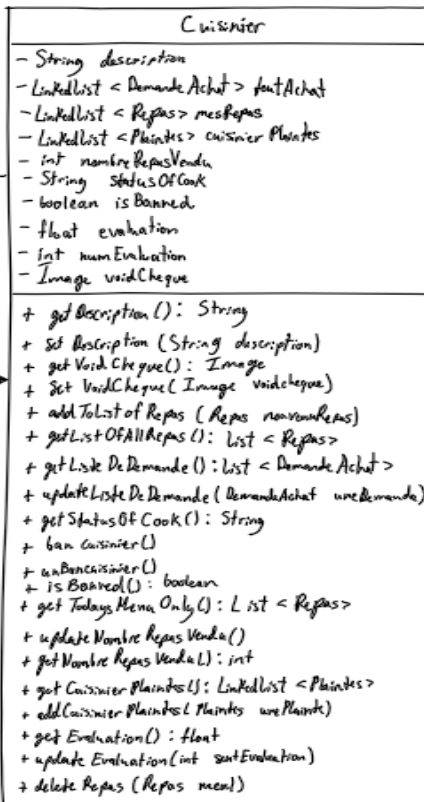 Cuisinier
- String description
- LinkedList < Demande Achat > toutAchat
- LinkedList < Repas> mesRepas
- LinkedList < Plaintes> cuisinier Plaintes
- int nombreRepasVendu
- String StatusOfCook
- boolean isBanned
- float evaluation
- int numEvaluation
- Image voidCheque
+ get Description (): String
+ Set Description (String description)
+ getVoid Cheque(): Image
+ Set VoidCheque( Image voidcheque)
+ addToListof Repas (Repas nouveauRepas)
+ getListOfAllRepas(): List < Repas>
+ getListe De Demande (): List < Demande Achat>
+ updateListe De Demande ( DemandeAchat uneDemande)
+ getStatusOf Cook(): String
+ ban cuisinier()
+ unBancuisinier()
+ is Banned(): boolean
+ get Todays Menu Only(): List < Repas>
+ update Nombre Repas Vendu()
+ getNombre Repas Vendu(): int
+ get Cuisinier Plaintes(): LinkedList <Plaintes>
+ addCuisinier Plaintes( Plaintes unePlainte)
+ get Evaluation() : float
+ update Evaluation(int sentEvaluation)
+ delete Repas (Repas meal)